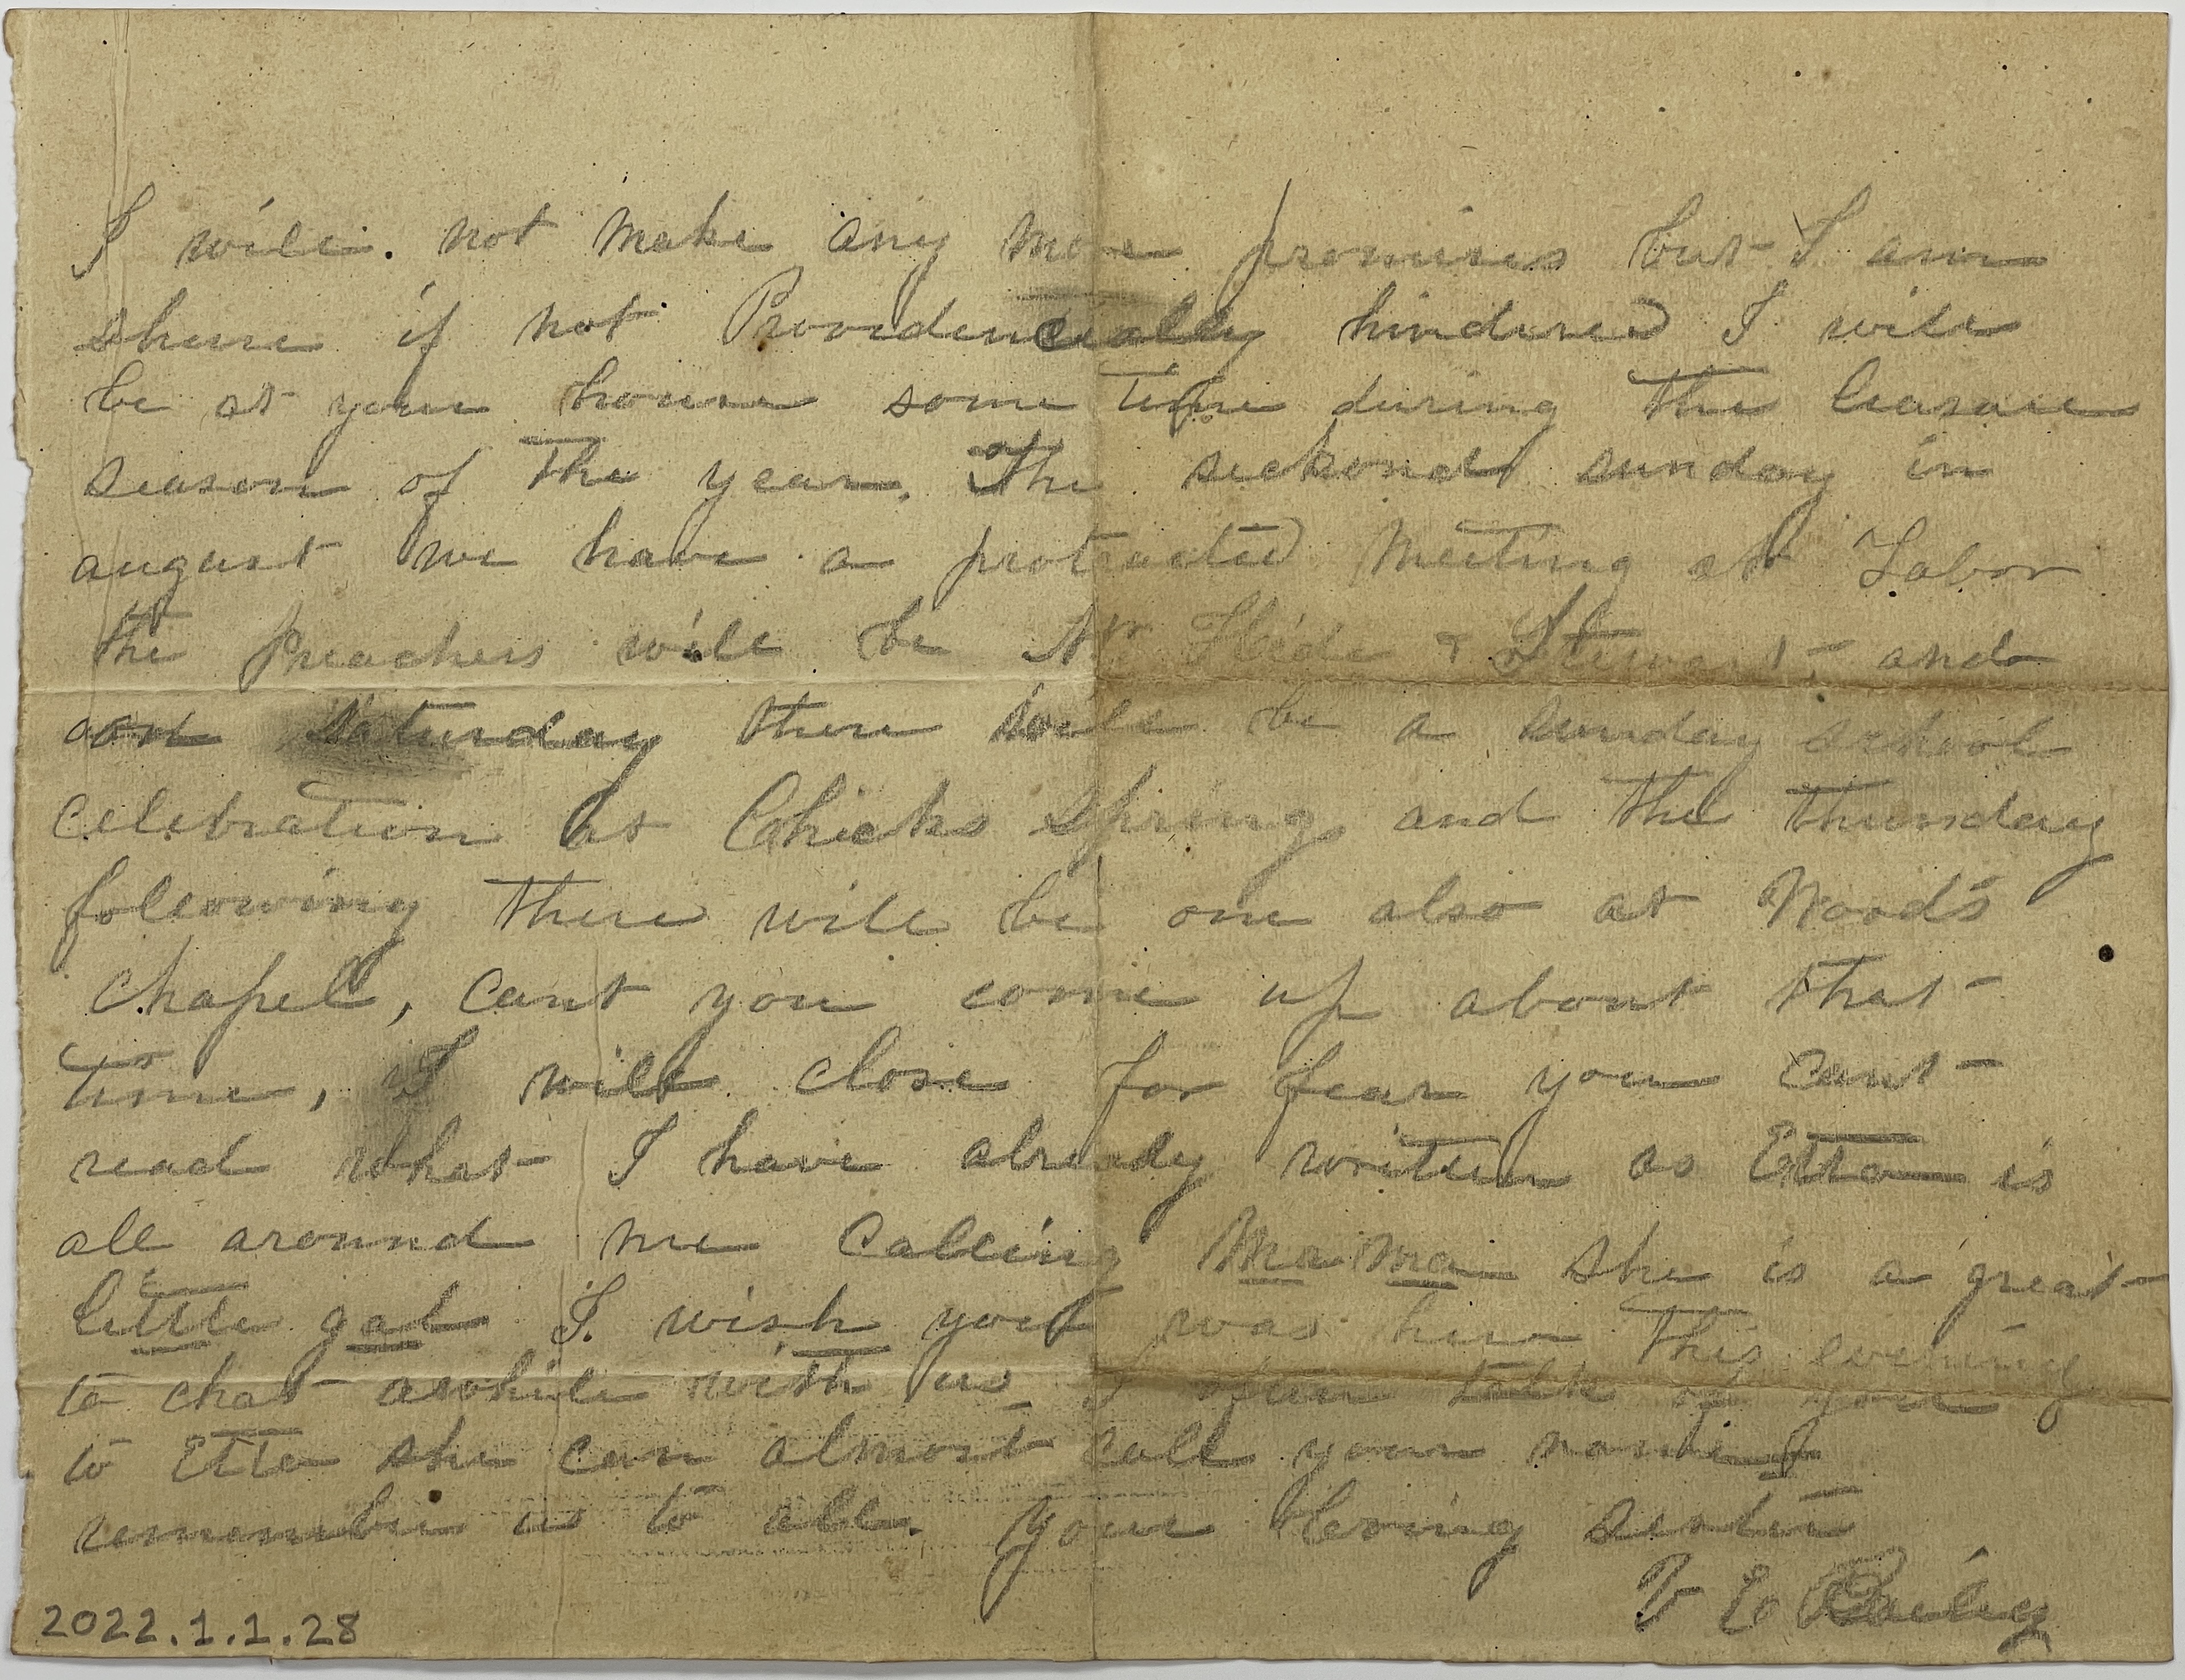 I will. not make any more promises but I am
shure if not Providencially hindered I will
be at your house some time during the leasure
season of the year. The seckond sunday in
august we have a protracted meeting at Labor
the Preachers will be Mr & Stewart and
on Saturday there will be a sunday school
celebration at Chicks Spring and the thursday
following there will be one also at Wood's
chapel, cant you come up about that
time, I will close for fear you cant
read what I have already written as Etta is
all around me calling Ma Ma she is a great
little gal I wish you was here this evening
to chat awhile with us I often talk of you
to Etta she can almost call your name
remember us to all. your loving sister
V E Baily
2022.1.1.28